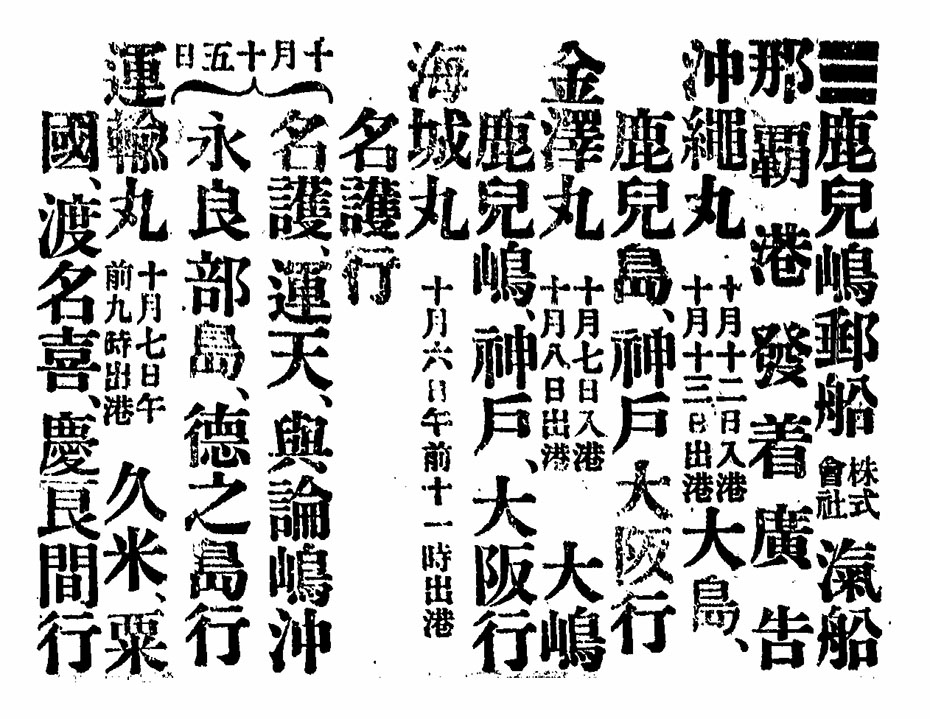 鹿兒嶋郵船株式會社滊船
那覇港發着廣告
沖繩丸 十月十二日入港 十月十三日出港 大島、
鹿兒島、神戶大阪行
金澤丸 十月七日入港 十月八日出港 大嶋
鹿兒嶋、神戶、大阪行
海城丸 十月六日午前十一時出港
名護行
十月十五日
名護、運天、與論嶋沖
永良部島、德之島行
運輸丸 十月七日午前九時出港 久米、粟
國、渡名喜、慶良間行